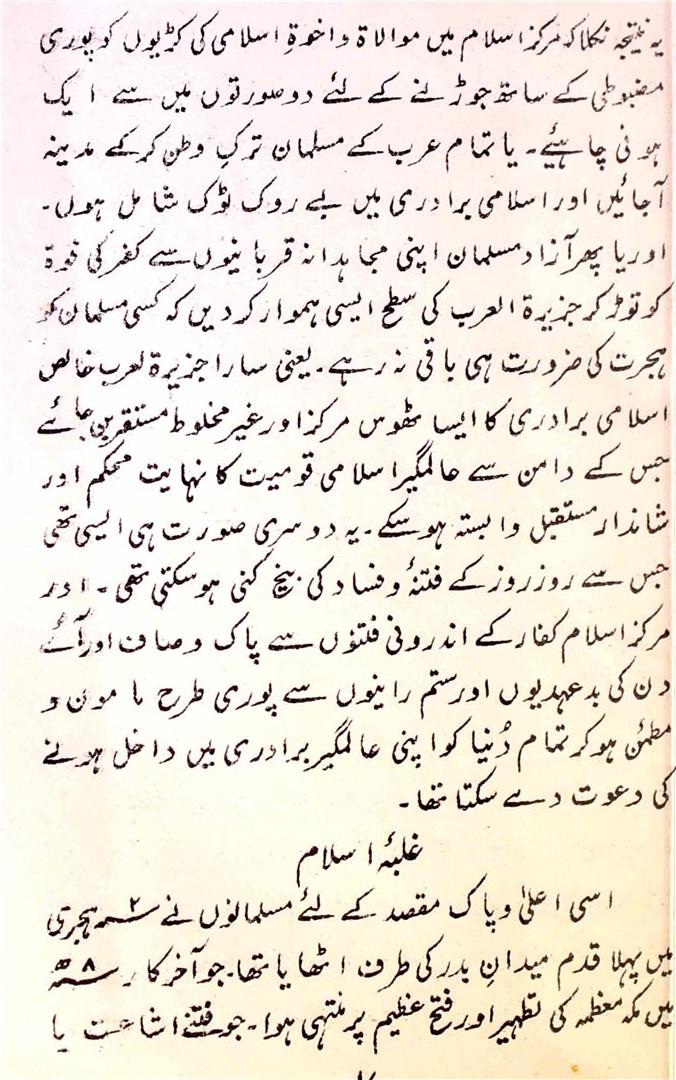 یہ نتیجہ نکلا کہ مرکز اسلام میں موالاۃ و اخوۃِ اسلامی کی کڑیوں کو پوری
مضبوطی کے ساتھ جوڑنے کے لئے دو صورتوں میں سے ایک
ہونی چاہیئے۔ یا تمام عرب کے مسلمان ترکِ وطن کر کے مدینہ
آجائیں اور اسلامی برادری میں بے روک ٹوک شامل ہوں۔
اور یا پھر آزاد مسلمان اپنی مجاہدانہ قربانیوں سے کفر کی قوۃ
کو توڑ کر جزیرۃ العرب کی سطح ایسی ہموار کر دیں کہ کسی مسلمان کو
ہجرت کی ضرورت ہی باقی نہ رہے۔ یعنی سارا جزیرۃ لعرب خالص
اسلامی برادری کا ایسا ٹھوس مرکز اور غیر مخلوط مستقر بن جائے
جس کے دامن سے عالمگیر اسلامی قومیت کا نہایت محکم اور
شاندار مستقبل وابستہ ہو سکے۔ یہ دوسری صورت ہی ایسی تھی
جس سے روز روز کے فتنۂ و فساد کی بیخ کنی ہو سکتی تھی۔ اور
مرکز اسلام کفار کے اندرونی فتنوں سے پاک و صاف اور آئے
دن کی بدعہدیوں اور ستم رانیوں سے پوری طرح مامون و
مطمئن ہو کر تمام دُنیا کو اپنی عالمگیر برادری میں داخل ہونے
کی دعوت دے سکتا تھا۔
غلبۂ اسلام
اسی اعلیٰ و پاک مقصد کے لئے مسلمانوں نے ۲؁ ہجری
میں پہلا قدم میدانِ بدر کی طرف اٹھایا تھا۔ جو آخر کار ۸؁ھ
میں مکہ معظمہ کی تطہیر اور فتح عظیم پر منتہی ہوا۔ جو فتنے اشاعت یا